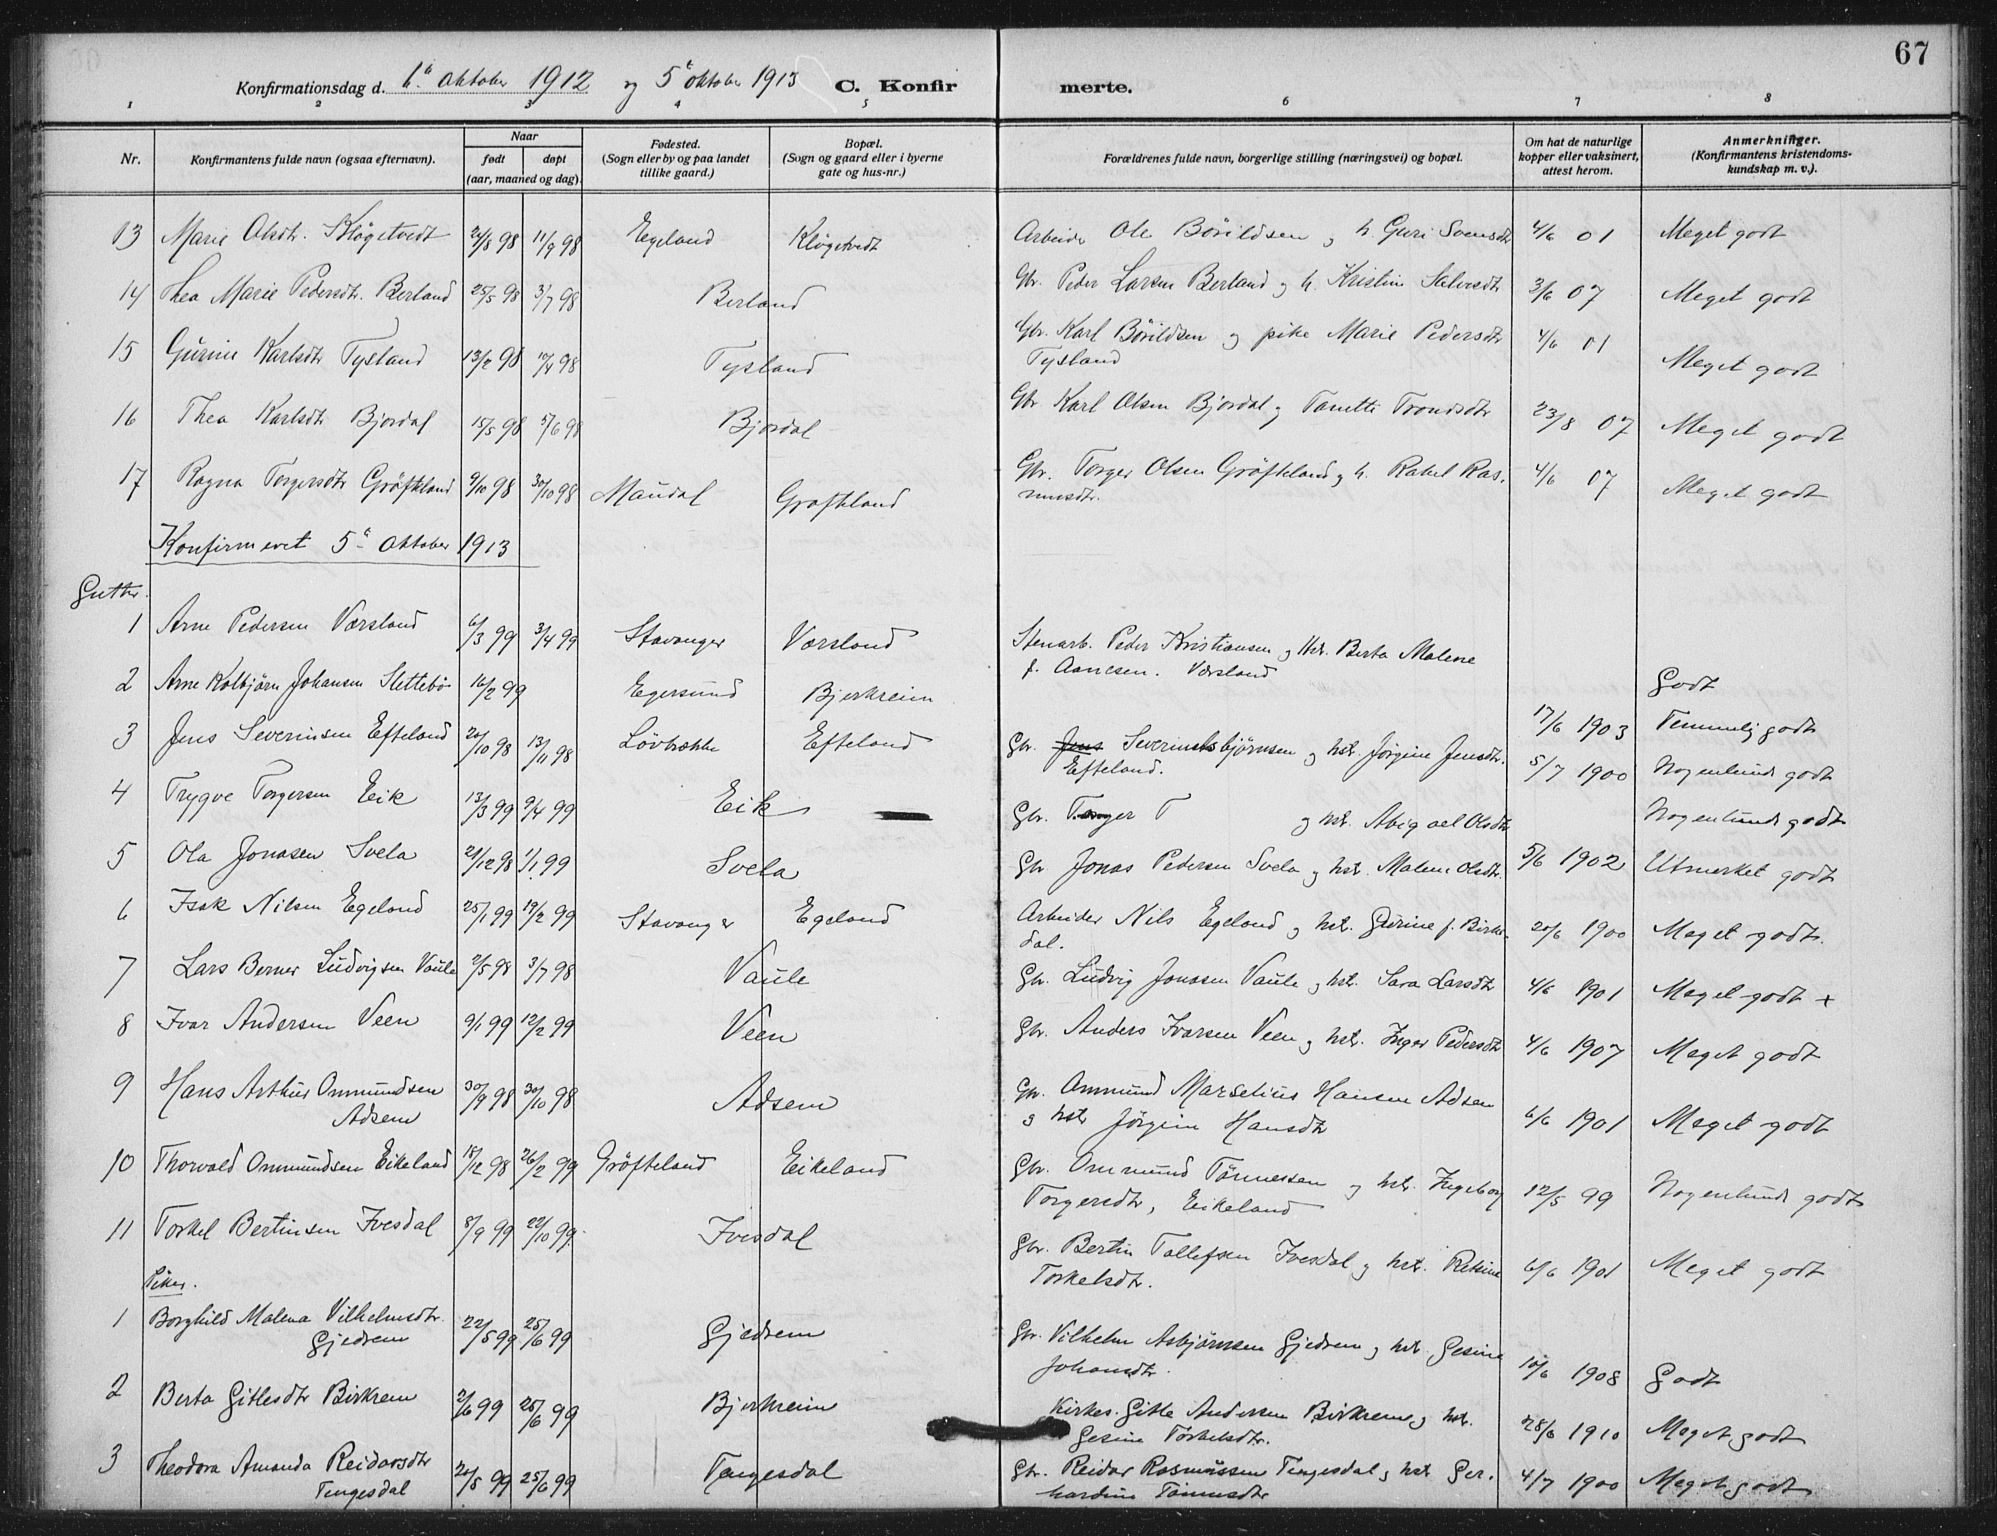 67
Konfirmationsdag d. 6te oktober 1912 og 5te oktober 1913 C. Konfirmerte.
1 2 3 4 5 6 7 8
Nr. Konfirmantens fulde navn (ogsaa efternavn). Naar født døpt (aar, maaned og dag). Fødested. (Sogn eller by og paa landet tillike gaard.) Bopæl. (Sogn og gaard eller i byerne gate og hus-nr.) Forældrenes fulde navn, borgerlige stilling (næringsvei) og bopæl. Om hat de naturlige kopper eller vaksinert, attest herom. Anmerkninger. (Konfirmantens kristendomskundskap m. v.).
13 Marie Olsdtr. Kløgetvedt 24/8 98 11/9 98 Egeland Kløgetvedt Arbeider Ole Børildsen og h. Guri Svensdtr 4/6 01 Meget godt
14 Thea Marie Pedersdtr. Berland 25/5 98 3/7 98 Berland Gbr. Peder Larsen Berland og h. Kristine Salvesdtr 3/6 07 Meget godt
15 Gurine Karlsdtr Tysland 13/2 98 10/4 98 Tysland Gbr. Karl Børildsen og pike Marie Pedersdtr 4/6 01 Meget godt
Tysland
16 Thea Karlsdtr Bjordal 15/5 98 5/6 98 Bjordal Gbr. Karl Olsen Bjordal og Tanette Trondsdtr 23/8 07 Meget godt
17 Ragna Torgersdtr Gröfteland 9/10 98 30/10 98 Maudal Grøfteland Gbr. Torger Olsen Gröfteland og h. Rakel Ras- 4/6 07 Meget godt
musdtr.
Konfirmeret 5te oktober 1913
Gutter.
1 Arne Pedersen Værsland 6/3 99 3/4 99 StavangerVærsland Stenarb. Peder Kristiansen og Hst. Berta Malene
f. Aanesen. Værsland Godt
2 Arne Kolbjörn Johansen Slettebö 16/2 99 Egersund Bjerkreim 17/6 1903 Temmelig godt
3 Jens Severinsen Efteland 20/10 98 13/11 98 Lövbrække Efteland Gbr. Jens Severin Asbjørnsen og hst. Jørgine Jensdtr. 5/7 1900 Nogenlunde godt
Efteland.
4 Trygve Torgersen Eik 13/3 99 9/4 99 Eik Gbr. Torger T og hst. Abigael Olsdtr Nogenlunde godt
5 Ola Jonasen Svela 21/12 98 1/1 99 Svela Gbr Jonas Pedersen Svela og hst. Malene Olsdtr. 5/6 1902 Utmerket godt
6 Isak Nilsen Egeland 25/1 99 19/2 99 Stavanger Egeland Arbeider Nils Egeland og hst. Gurine f. Birke- 20/6 1900 Meget godt.
dal.
7 Lars Berner Ludvigsen Vaule 2/5 98 3/7 98 Vaule Gbr. Ludvig Jonasen Vaule og hst. Sara Larsdtr 4/6 1901 Meget godt +
8 Ivar Andersen Veen 9/1 99 12/2 99 Veen Gbr. Anders Ivarsen Veen og hst. Inger Pedersdtr 4/6 1907 Meget godt
9 Hans Arthur Ommundsen 30/9 98 30/10 98 Adsem Gbr. Ommund Marselius Hansen Adsem 6/6 1901 Meget godt
Adsem og hst Jørgine Hansdtr
10 Thorvald Ommundsen Eikeland 18/12 98 26/2 99 Gröfteland Eikeland Gbr. Ommund Tönnessen og hst. Ingeborg 12/5 99 Nogenlunde godt
Torgersdtr, Eikeland
11 Torkel Bertinsen Ivesdal 8/9 99 22/10 99. Ivesdal Gbr. Bertin Tollefsen Ivesdal og hst. Retsine 6/6 1901 Meget godt
Torkelsdtr.
Piker.
1 Borghild Malena Vilhelmsdtr. 22/5 99 25/6 99 Gjedrem Gbr. Vilhelm Asbjørnsen Gjedrem og hst. Gesine 10/6 1908 Godt
Gjedrem Johansdtr.
2 Berta Gitlesdtr Birkrem 2/6 99 25/6 99 Bjerkreim Kirkes. Gitle Andersen Birkrem og hst. 28/6 1910 Meget godt
Gesine Torkelsdtr.
3 Theodora Amanda Reidarsdtr 20/5 99 25/6 99 Tengesdal Gbr. Reidar Rasmussen Tengesdal og hst Ger- 4/7 1900 Meget godt
Tengesdal hardine Tönnesdtr